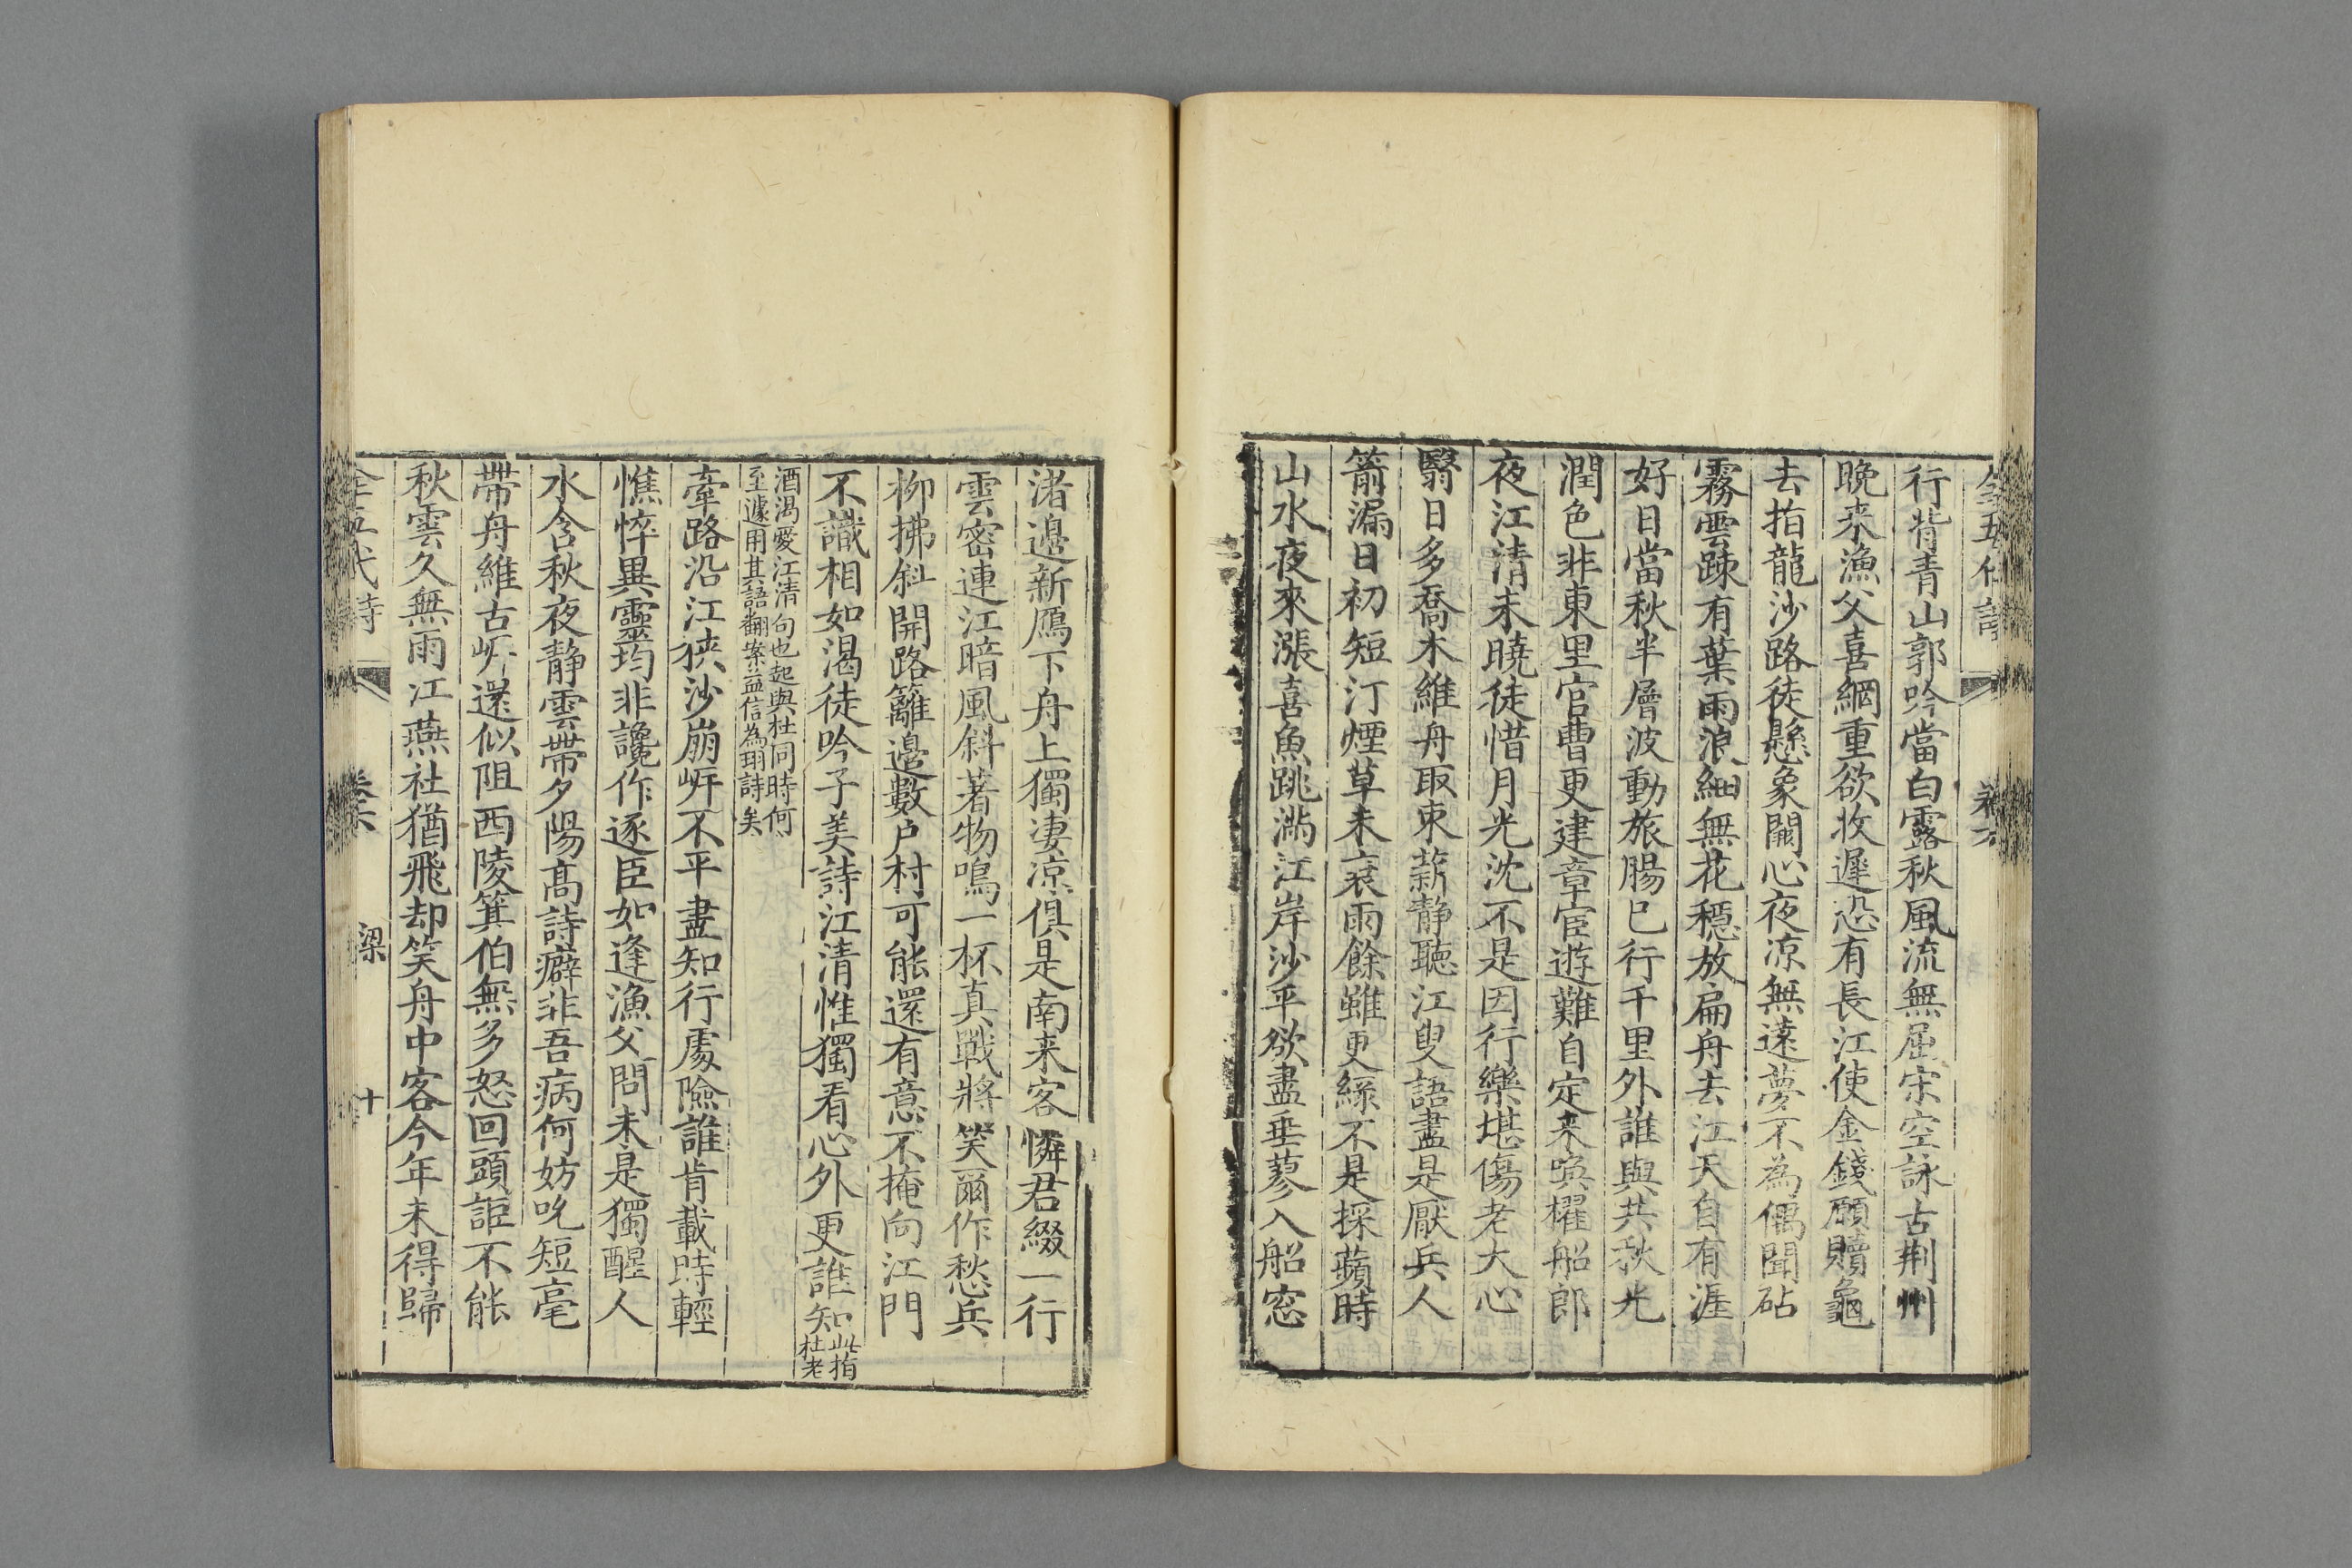 全五代詩 卷六
行背青山郭吟當白露秋風流無屈宋空詠古荆州
晚来漁父喜網重欲收遲恐有長江使金錢願贖龜
去指龍沙路徒懸象闕心夜凉無遠夢不為偶聞砧
霧雲疎有葉雨浪細無花穩放扁舟去江天自有涯
好日當秋半層波動旅腸已行千里外誰與共秋光
潤色非東里官曹更建章宦遊難自定来喚櫂船郎
夜江清未曉徒惜月光沈不是因行樂堪傷老大心
翳日多喬木維舟取束薪静聽江叟語盡是厭兵人
箭漏日初短汀煙草未衰雨餘雖更綠不是採蘋時
山水夜來漲喜魚跳滿江岸沙平欲盡垂蓼入船窓
渚邉新鴈下舟上獨凄凉俱是南来客憐君綴一行
雲密連江暗風斜著物鳴一杯真戰將笑爾作愁兵
柳拂斜開路籬邉數户村可能還有意不掩向江門
不識相如渴徒吟子美詩江清惟獨看心外更誰知此指杜老
酒渴愛江清句也起與杜同時何
至遽用其語翻案益信為珝詩矣
牽路沿江狹沙崩岍不平盡知行處險誰肯載時輕
憔悴異靈均非讒作逐臣如逢漁父問未是獨醒人
水含秋夜静雲帶夕陽髙詩癖非吾病何妨吮短毫
帶舟維古岍還似阻西陵箕伯無多怒回頭詎不能
秋雲久無雨江燕社猶飛却笑舟中客今年未得歸
全五代詩 卷六 梁 十